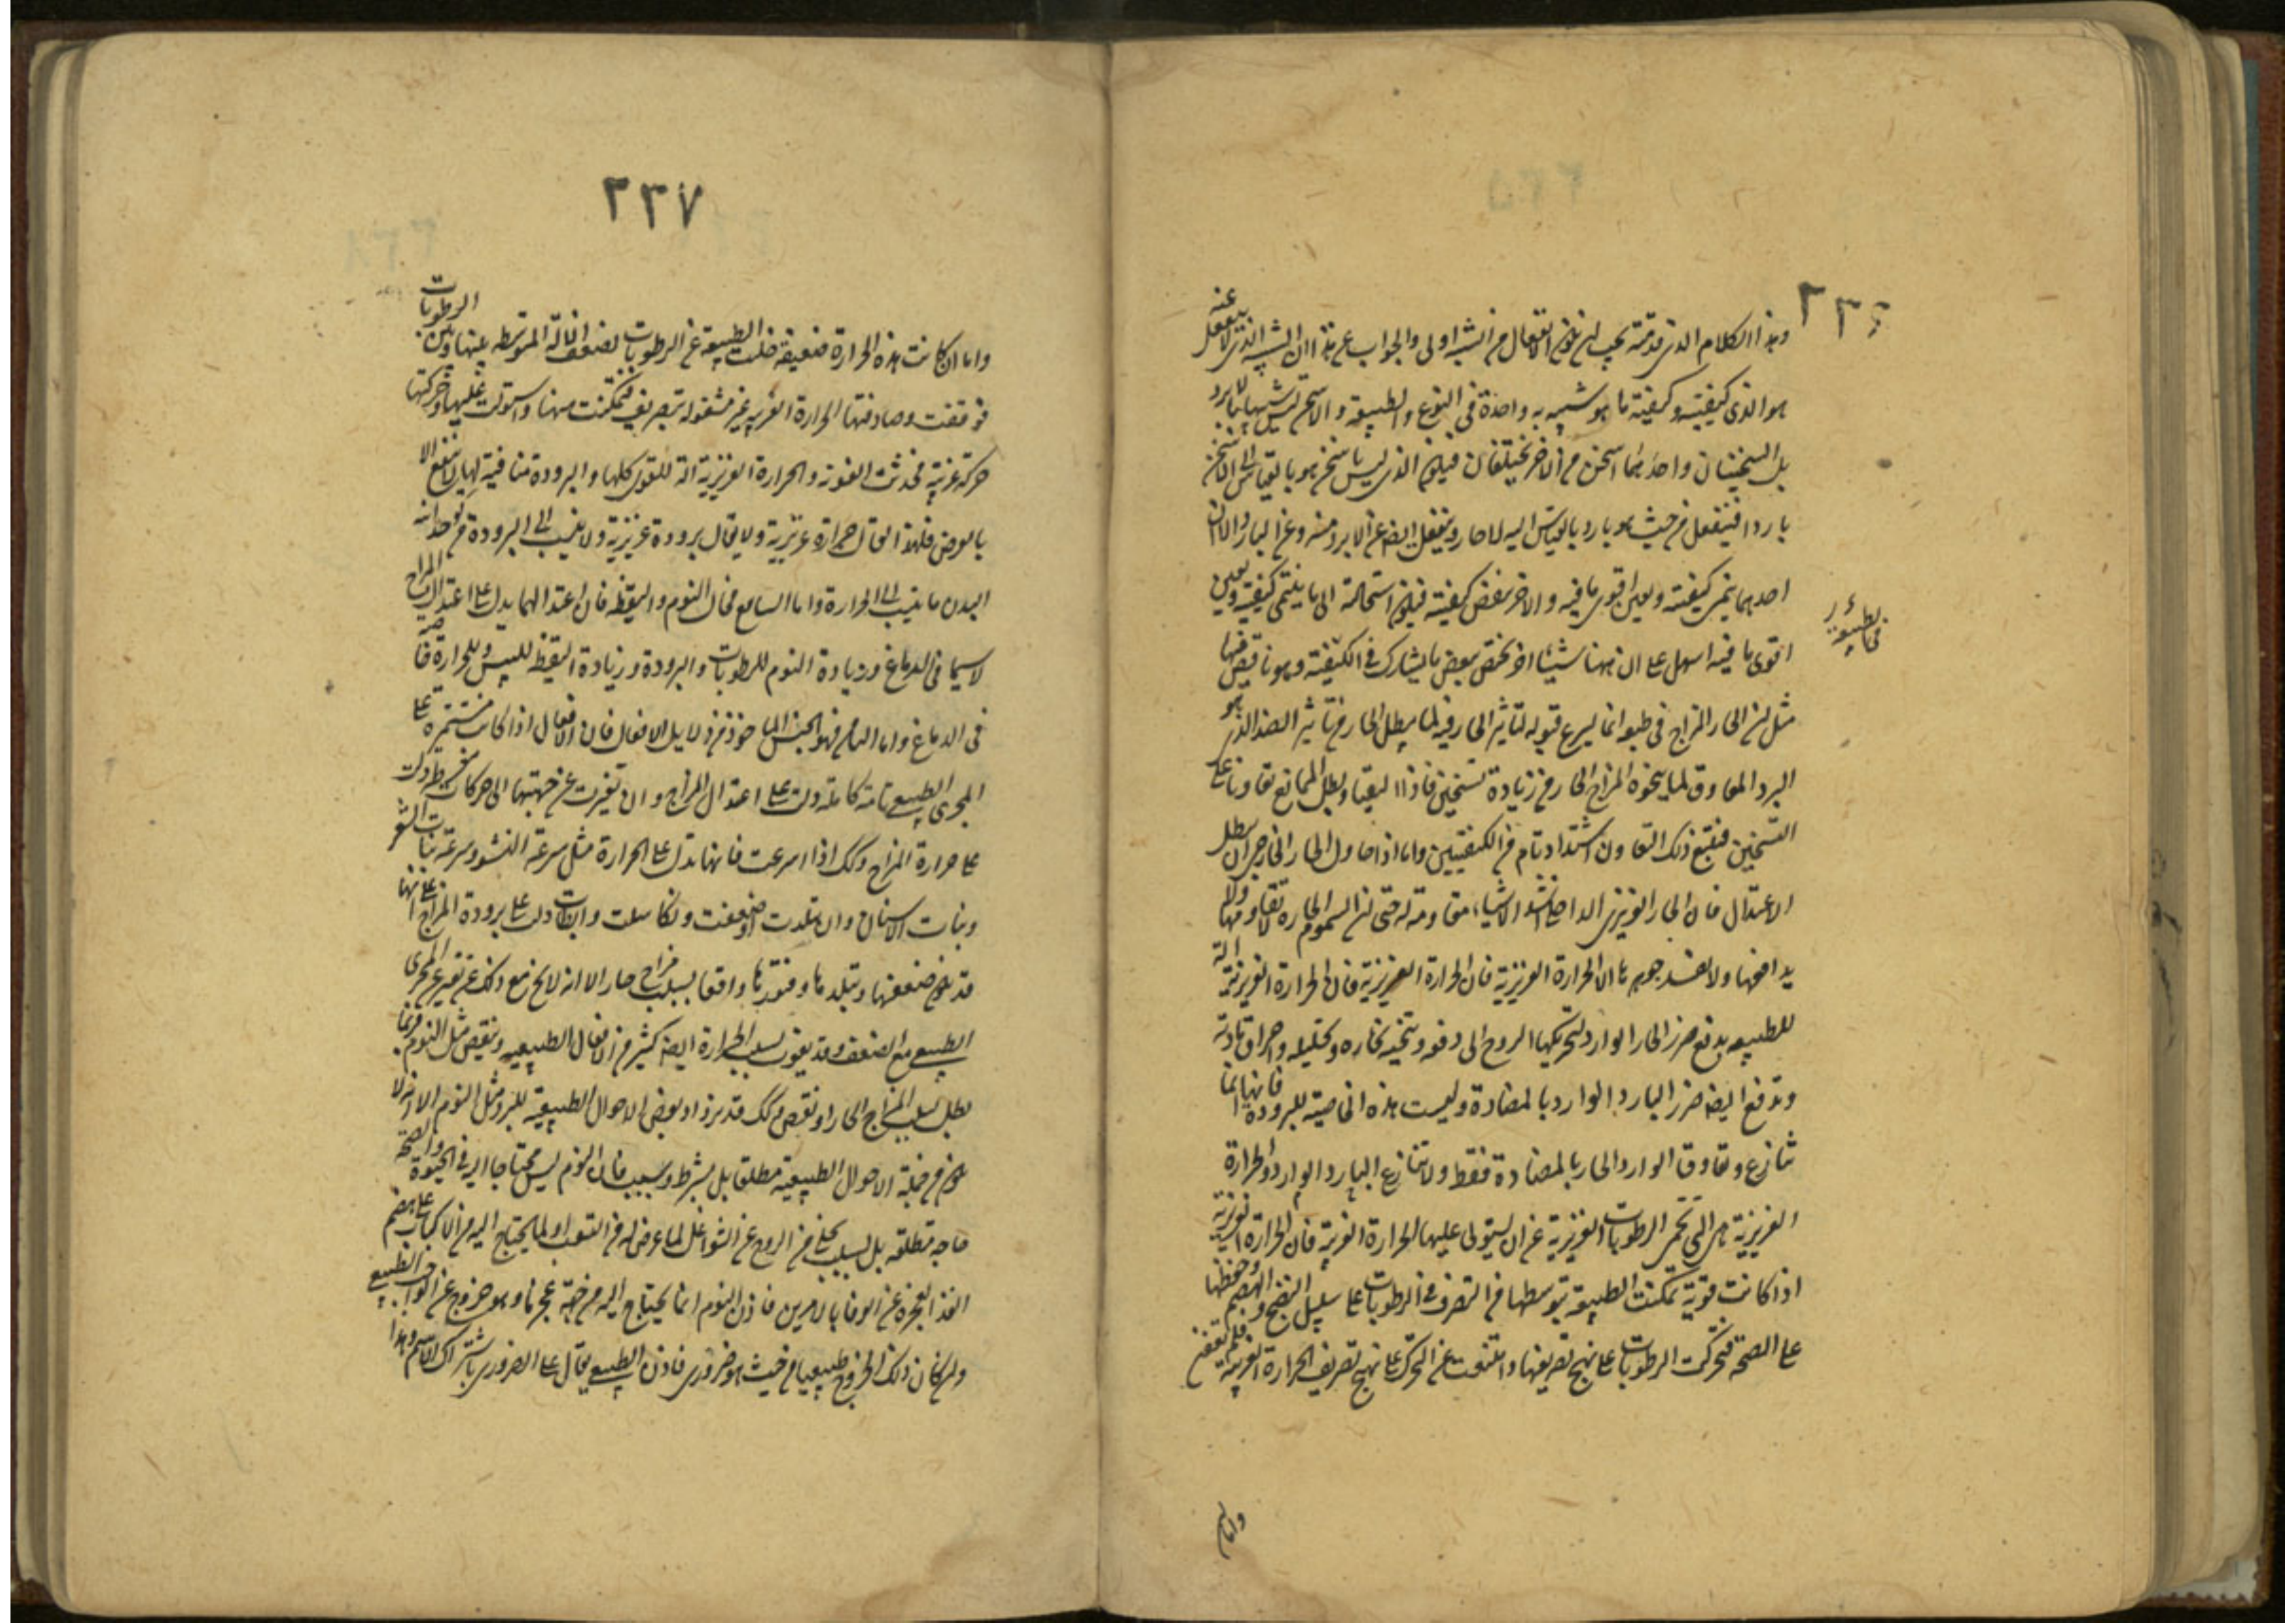 ٢٣٦
وهذا الكلام الذى قدمته يجب ان يكون الانفعال من الشبيه اولى والجواب عن هذا ان الشبيه الذى لا ينفعل عنه
هو الذى كيفيته وكيفية ما هو شبيه به واحدة فى النوع والطبيعة والاسخن ليس شبيها بالابرد
بل السخينان واحدهما اسخن من الاخر يختلفان فيكون الذى ليس باسخن هو بالقياس الى الاسخن
باردا فينفعل من حيث هو بارد بالقياس اليه لا حار وينفعل ايضا عن الابرد منه وعن البارد الا ان
احدهما ينمى كيفيته ويعين اقوى ما فيه والاخر ينقض كيفيته فيكون استحالته الى ما ينمى كيفيته ويعين
اقوى ما فيه اسهل على ان ههنا شيئا اخر يختص ببعض ما يشارك فى الكيفية وهو ناقص فيها
مثل ان الحار المزاج فى طبعه انما يسرع قبوله لتاثير الحار فيه لما يبطل الحار من تاثير الضد الذى هو
البرد المعاوق لما ينحوه المزاج الحار من زيادة تسخين فاذا التقيا وبطل الممانع تعاونا على
التسخين فيتبع ذلك التعاون اشتداد تام من الكيفيتين واما اذا حاول الحار الخارجى ان يبطل
الاعتدال فان الحار الغريزى الداخل اشد الاشياء مقاومة له حتى ان السموم الحارة لا تقاومها ولا
يدافعها ولا يفسد جوهرها الا الحرارة الغريزية فان الحرارة الغريزية فان الحرارة الغريزية الة
للطبيعة يدفع ضرر الحار الوارد بتحريكها الروح الى دفعه وتنحية بخاره وتحليله واحراق مادته
وتدفع ايضا ضرر البارد الوارد بالمضادة وليست هذه الخاصية للبرودة فانها انما
تنازع وتعاوق الوارد الحار بالمضادة فقط ولا تنازع البارد الوارد والحرارة
الغريزية هى التى تحمى الرطوبات الغريزية عن ان يستولى عليها الحرارة الغريبة فان الحرارة الغريزية
اذا كانت قوية تمكنت الطبيعة بتوسطها من التصرف فى الرطوبات على سبيل النضج والهضم وحفظها
على الصحة فتحركت الرطوبات على نهج تصريفها وامتنعت عن التحرك على نهج تصريف الحرارة الغريبة فلم تعفن
واما ان
٢٣٧
واما ان كانت هذه الحرارة ضعيفة خلت الطبيعة عن الرطوبات لضعف الالة المتوسطة بينها وبين الرطوبات
فوقفت وصادفتها الحرارة الغريبة غير مشغولة بتصريف فتمكنت منها واستولت عليها وحركتها
حركة غريبة فحدثت العفونة والحرارة الغريزية الة للقوى كلها والبرودة منافية لها لا تنفع الا
بالعرض فلهذا يقال حرارة غريزية ولا يقال برودة غريزية ولا ينسب الى البرودة من كدخدائية
البدن ما ينسب الى الحرارة واما السابع فحال النوم واليقظة فان اعتدالهما يدل على اعتدال المزاج
لاسيما فى الدماغ وزيادة النوم للرطوبات والبرودة وزيادة اليقظة لليبس وللحرارة خاصة
فى الدماغ واما الثامن فهو الجنس الماخوذ من دلايل الافعال فان الافعال اذا كانت مستمرة على
المجرى الطبيعى تامة كاملة دلت على اعتدال المزاج وان تغيرت عن جهتها الى حركات مفرطة دلت
على حرارة المزاج وكك اذا اسرعت فانها تدل على الحرارة مثل سرعة النشو وسرعة نبات الشعر
ونبات الاسنان وان تبلدت او ضعفت وتكاسلت وابطات دلت على برودة المزاج على انها
قد يكون ضعفها وتبلدها وفتورها واقعا بسبب مزاج حار الا انه لا يخ مع ذلك عن تغير عن المجرى
الطبيعى مع الضعف وقد يفوت بسبب الحرارة ايضا كثير من الافعال الطبيعية وينقص مثل النوم فربما
بطل بسبب المزاج الحار او نقص وكك قد يزداد بعض الاحوال الطبيعية للبرد مثل النوم الا انه لا
يكون من جملة الاحوال الطبيعية مطلقا بل بشرط وسبب فان النوم ليس محتاجا اليه فى الحيوة والصحة
حاجة مطلقة بل بسبب تخلى من الروح عن الشواغل لما عرض له من التعب او لما يحتاج اليه من الاكباب على هضم
الغذا لعجزه عن الوفا بالامرين فاذن النوم انما يحتاج اليه من جهة عجز ما وهو خروج عن الواجب الطبيعى
وان كان ذلك الخروج طبيعيا من حيث هو ضرورى فاذن الطبيعى يقال على الضرورى باشتراك الاسم وهذا